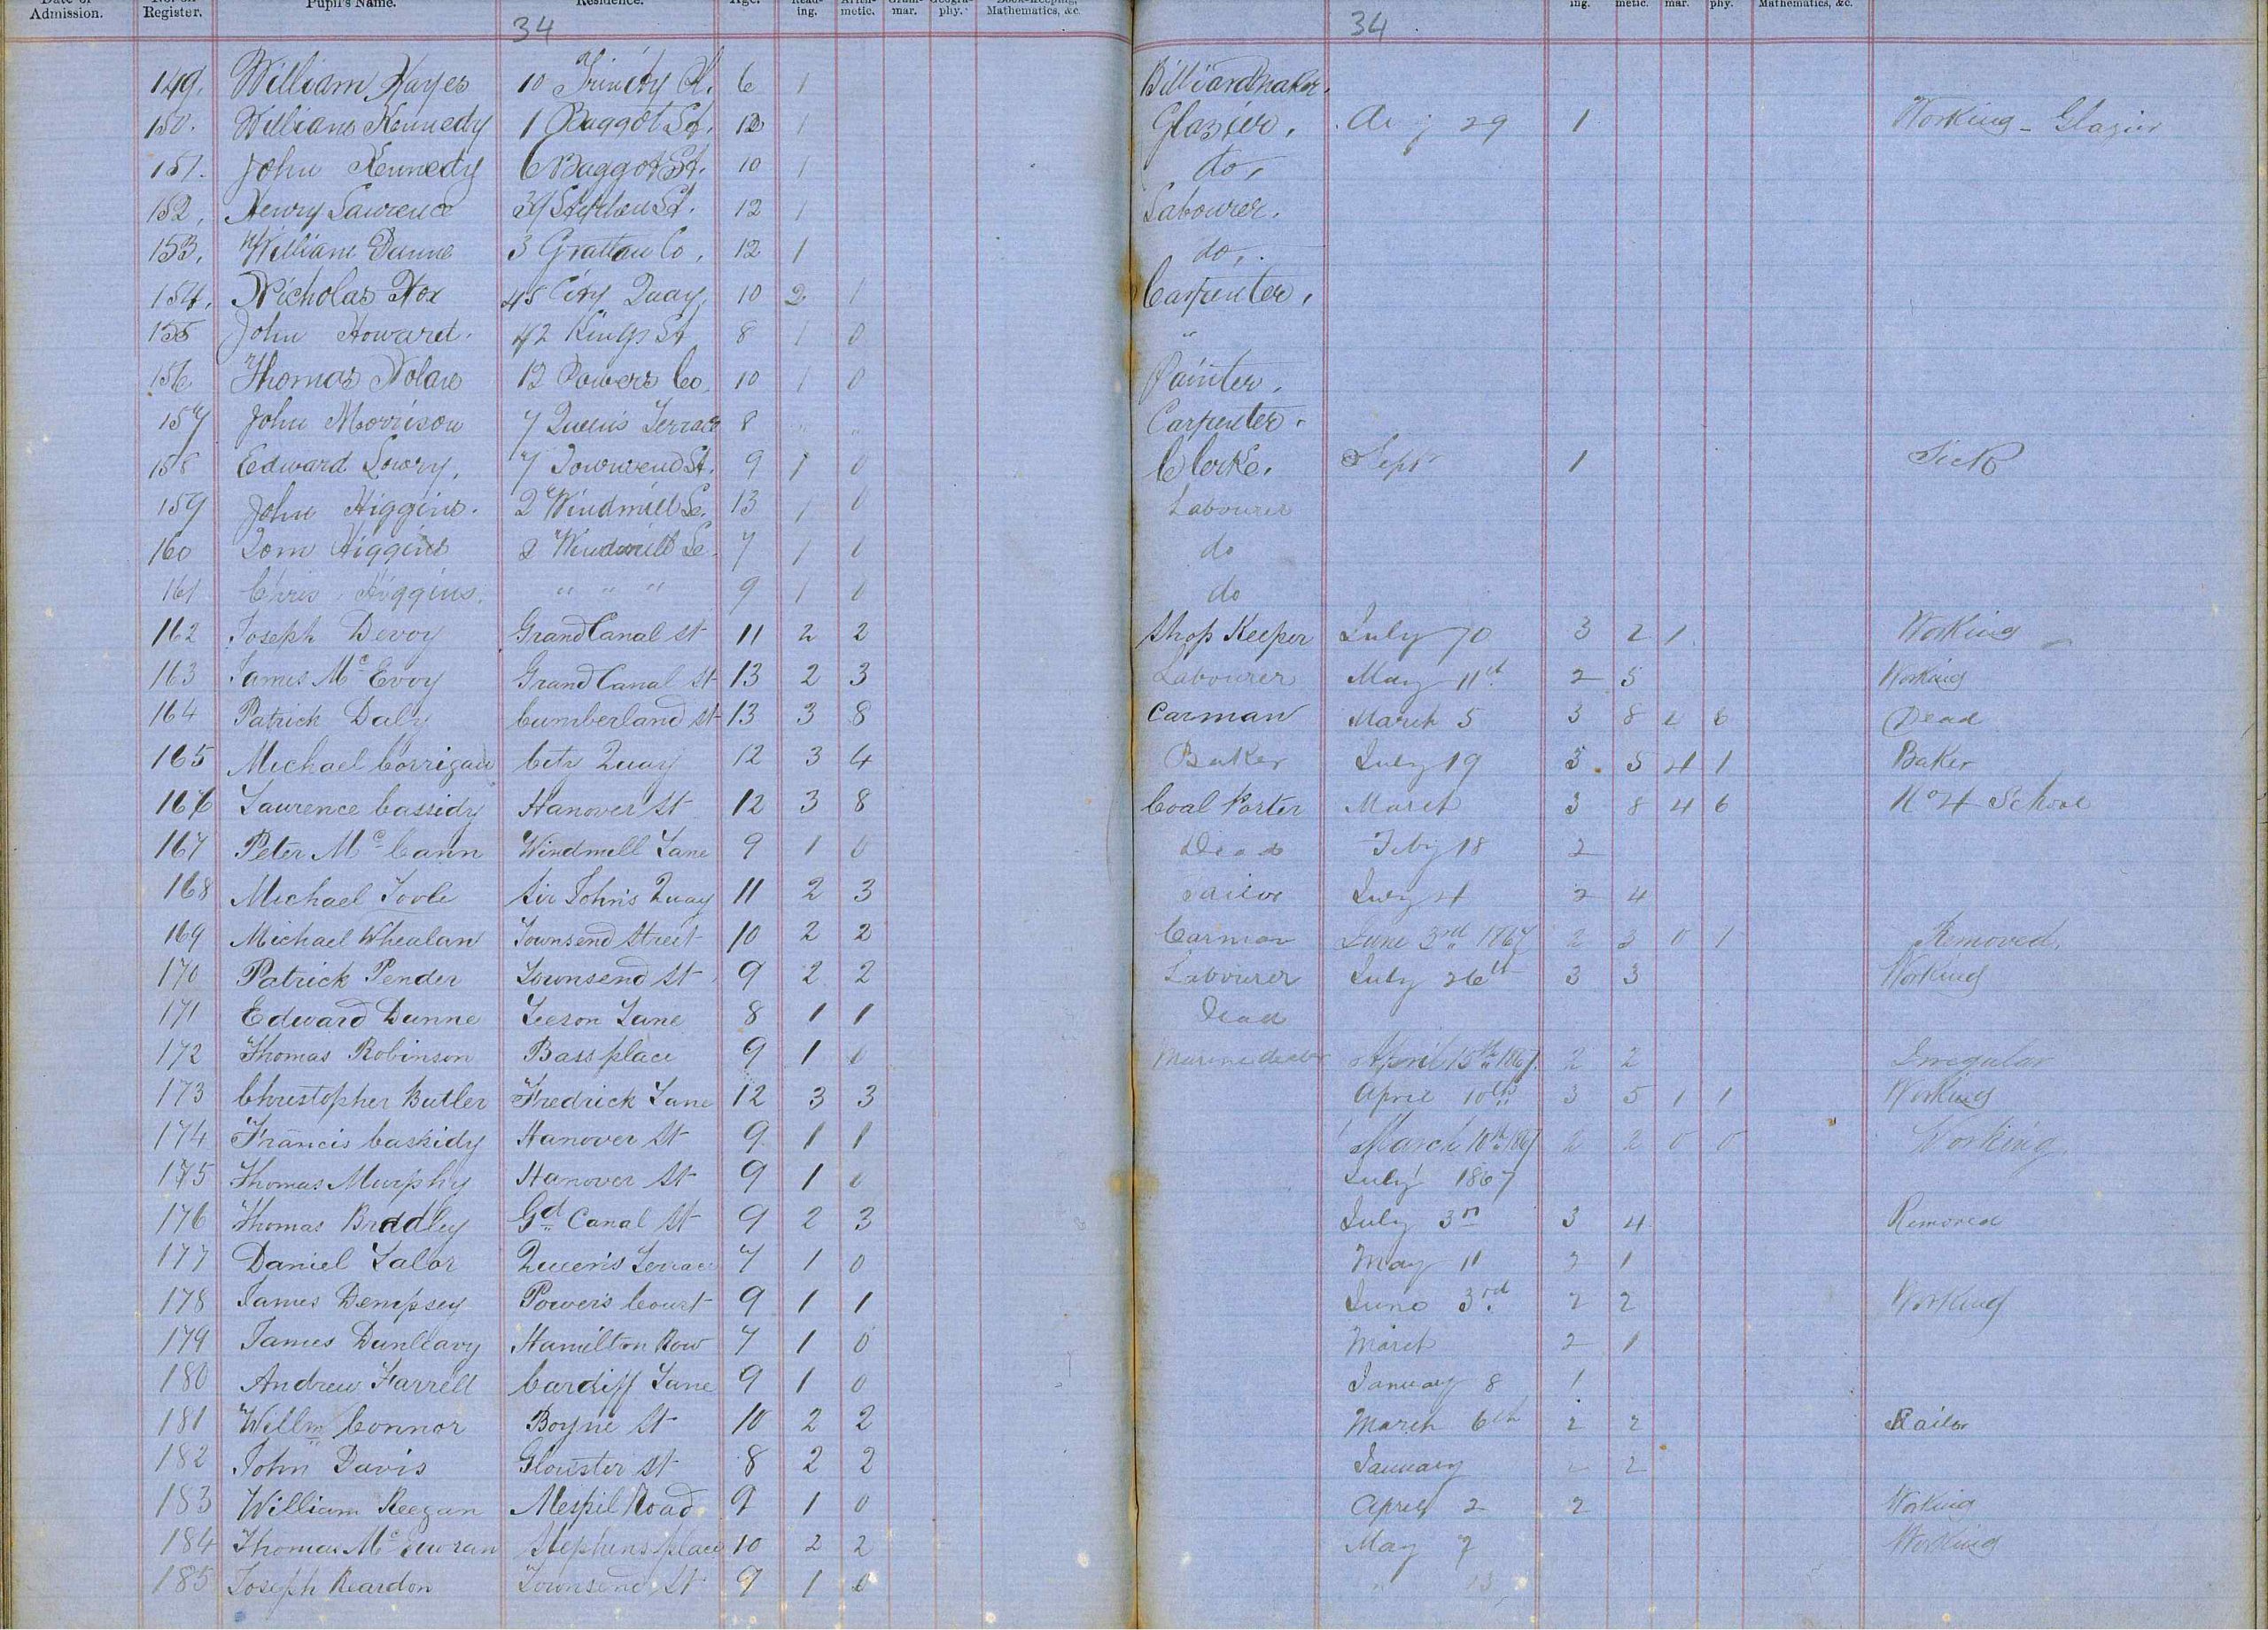 Date of Admission. No. on Register. Pupil's Name. Residence. Age. Read-ing. Arith-metic. Gram-mar. Geogra-phy. Book-keeping, Mathematics, &c. ing. metic. mar. phy. Mathematics, &c.
34 34
149. William Hayes 10 Trinity Pl. 6 1 Billiardmaker.
150. William Kennedy 1 Baggot St. 12 1 Glazier. Aug 29 1 Working - Glazier
151. John Kennedy 6 Baggot St. 10 1 do,
152. Henry Lawrence 12 1 Labourer.
153. William Dunne 3 Grattan Co. 12 1 do,
154. Nicholas Fox 45 City Quay. 10 2 1 Carpenter.
155 John Howard. 42 Kings St 8 1 0 "
156 Thomas Nolan 12 Powers Co. 10 1 0 Painter.
157 John Morrison 7 Queens Terrace 8 " " Carpenter.
158 Edward Lowry. 7 Townsend St. 9 1 0 Clerke. Sept 1 Sick
159 John Higgins. 2 Windmill La. 13 1 0 Labourer
160 Tom Higgins 2 Windmill La. 7 1 0 do
161 Chris Higgins. " " " 9 1 0 do
162 Joseph Devoy Grand Canal st 11 2 2 Shop Keeper July 70 3 2 1 Working
163 James McEvoy Grand Canal St 13 2 3 Labourer May 11th 2 5 Working
164 Patrick Daly Cumberland st 13 3 8 Carman March 5 3 8 4 6 Dead
165 Michael Corrigan City Quay 12 3 4 Baker July 19 3 5 4 1 Baker
166 Laurence Cassidy Hanover St 12 3 8 Coal Porter March 3 8 4 6 No 4 School
167 Peter McCann Windmill Lane 9 1 0 Dead Feby 18 2
168 Michael Toole Sir John's Quay 11 2 3 Tailor July 4 2 4
169 Michael Whealan Townsend Street 10 2 2 Carman June 3rd 1867 2 3 0 1 Removed.
170 Patrick Pender Townsend St 9 2 2 Labourer July 26th 3 3 Working
171 Edward Dunne Leeson Lane 8 1 1 Dead
172 Thomas Robinson Bass place 9 1 0 Marine dealer April 15th 1867. 2 2 Irregular
173 Christopher Butler Fredrick Lane 12 3 3 April 10th 3 5 1 1 Working
174 Francis Cassidy Hanover St 9 1 1 March 10th 1867 2 2 0 0 Working.
175 Thomas Murphy Hanover St 9 1 0 July 1867
176 Thomas Braddley Gd Canal St 9 2 3 July 3rd 3 4 Removed
177 Daniel Lalor Queen's Terrace 7 1 0 May 11 2 1
178 James Dempsey Power's Court 9 1 1 June 3rd. 2 2 Working
179 James Dunleavy Hamilton Row 7 1 0 March 2 1
180 Andrew Farrell Cardiff Lane 9 1 0 January 8 1
181 Willm Connor Boyne St 10 2 2 March 6th 2 2 Sailor
182 John Davis Glouster St 8 2 2 January 2 2
183 William Reegan Mespil Road 9 1 0 April 2 2 Working
184 Thomas Stephens place 10 2 2 May 7 Working
185 Joseph Reardon Townsend St 9 1 0 " 13